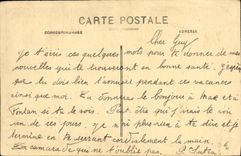 CARTE POSTALE
CORRESPONDANCE
ADRESSE
Cher Guy
Je t'écris ces quelques mots pour te donner de mes
nouvelles qui te trouveront en bonne santé. J'espère
que tu dois bien t'amuser pendant ces vacances
ainsi que moi. Tu donneras le bonjour à Max et à
si je t'ai vu
un de ces jours. Je n'ai plus rien à te dire et je
termine en te serrant cordialement la main.
Ton camarade qui ne t'oublie pas.